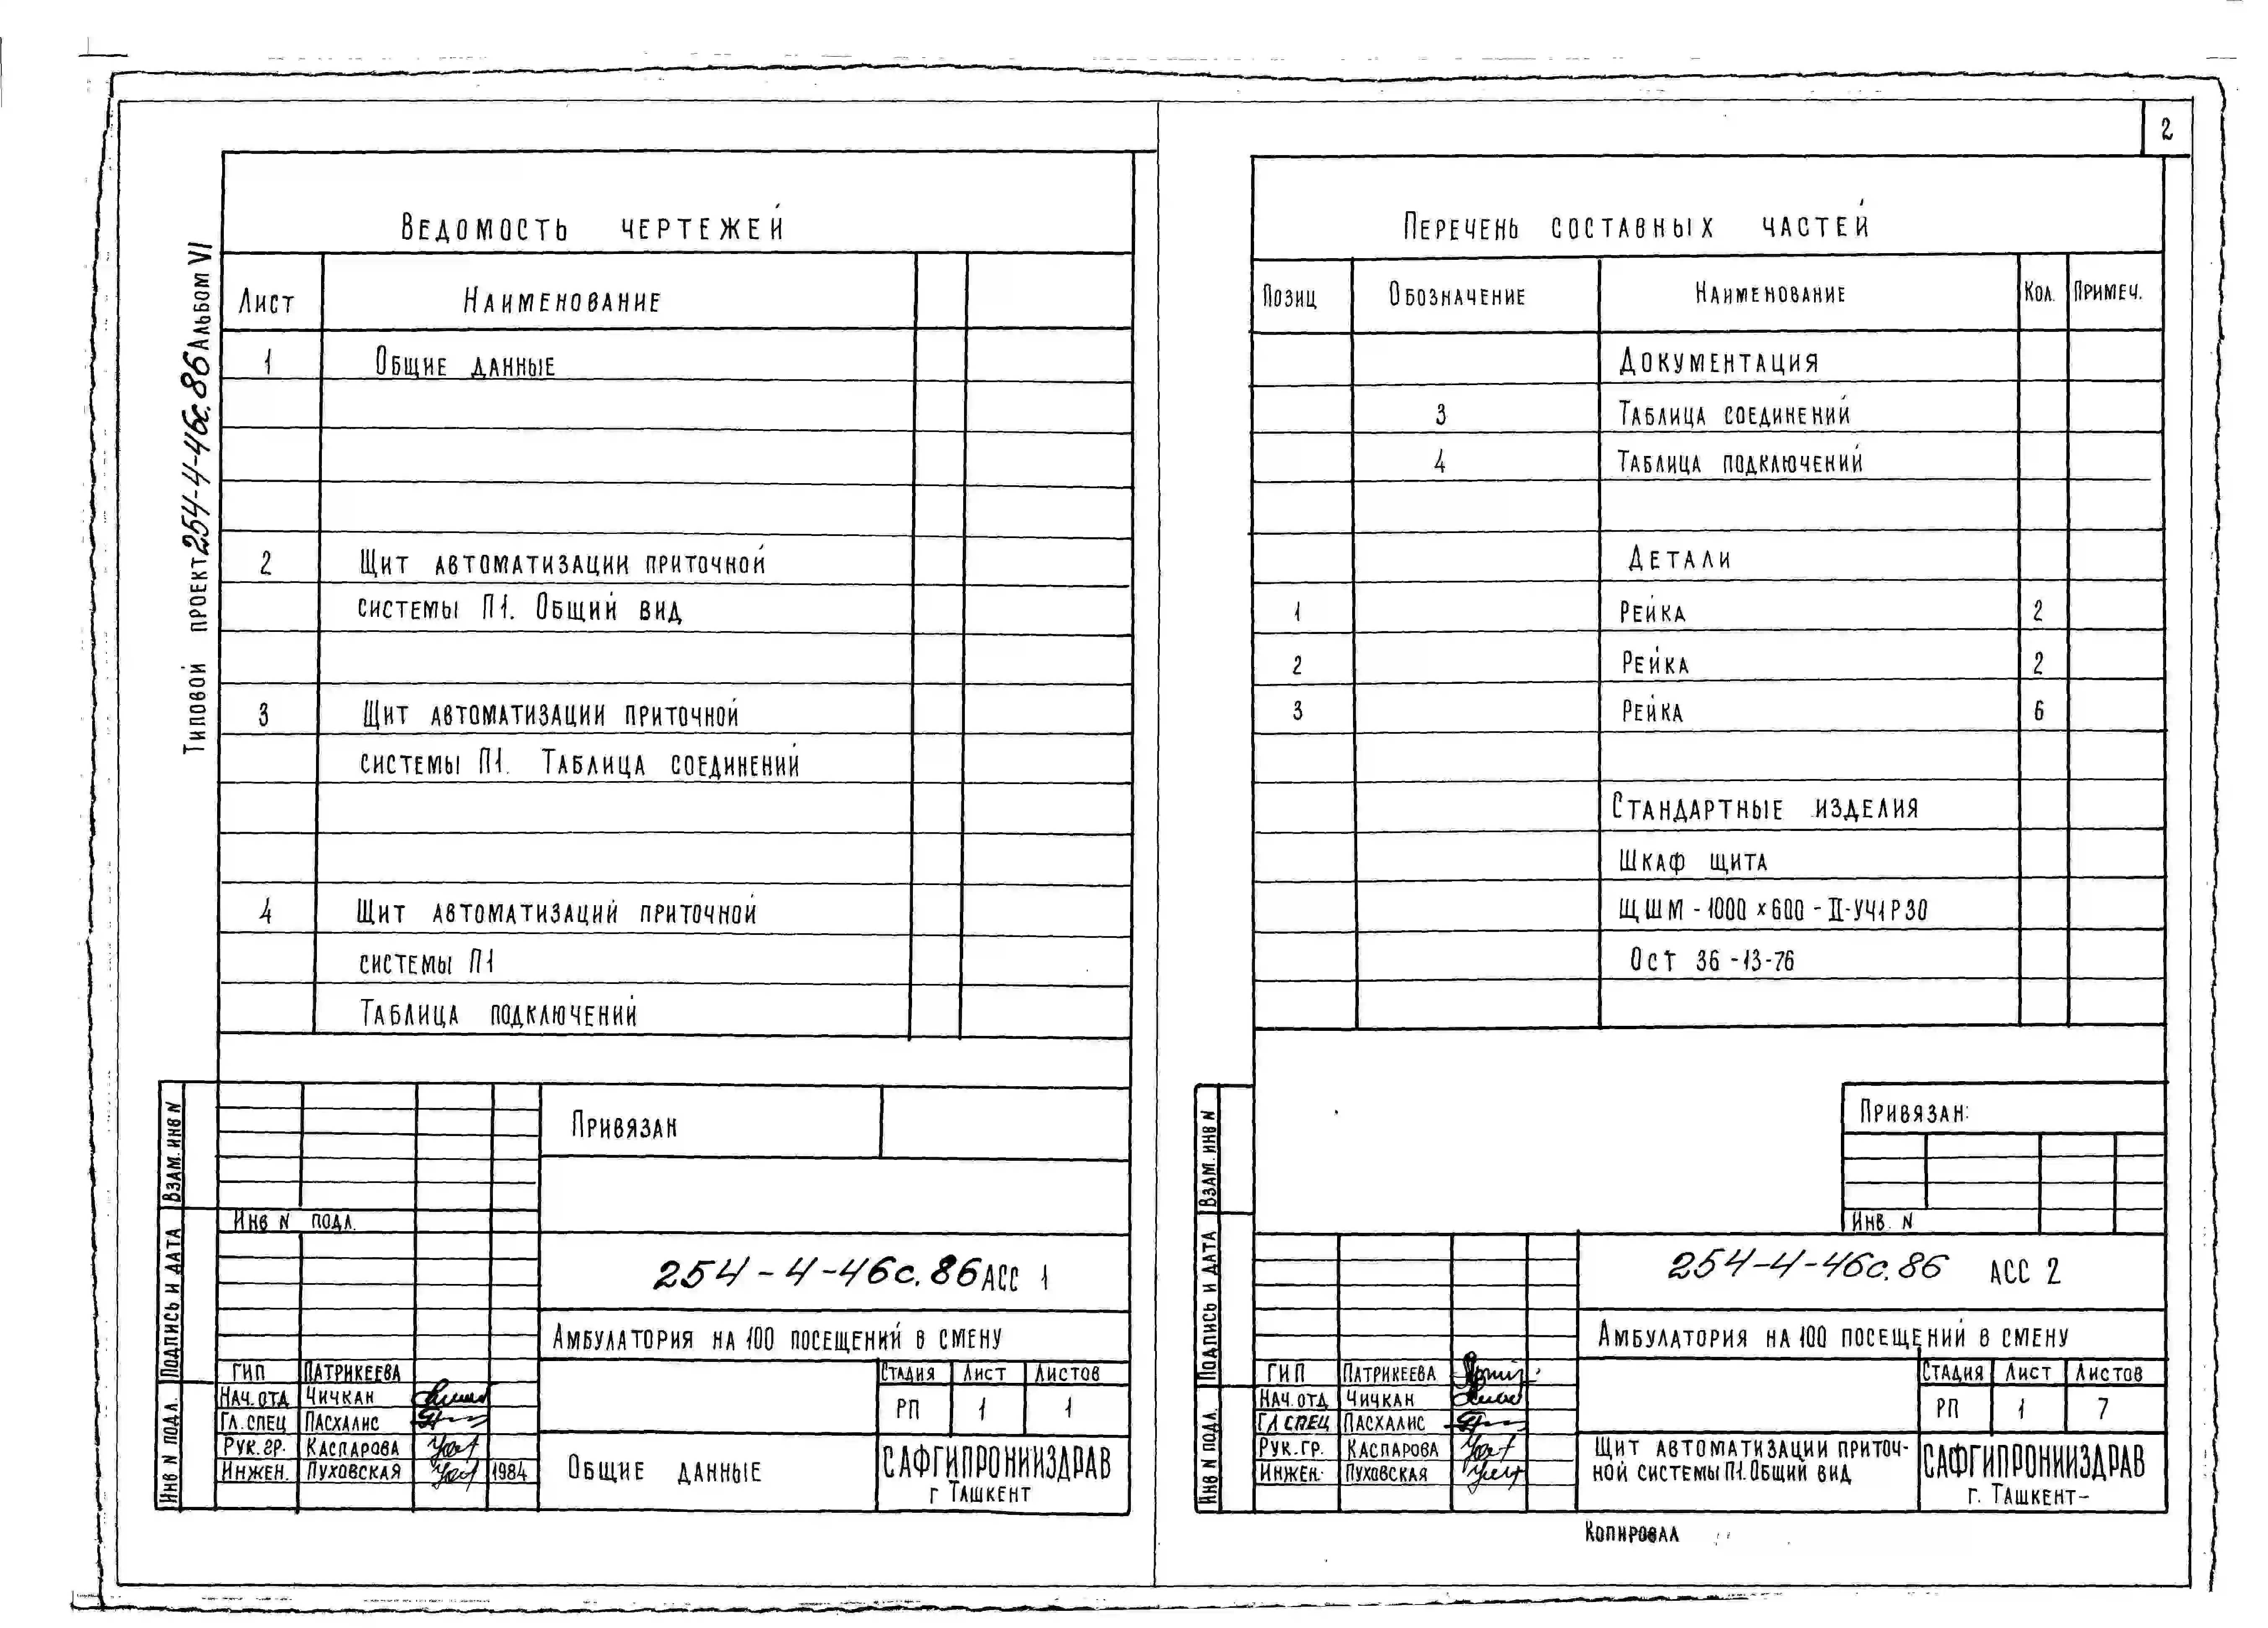 2
Типовой проект 254-4-46с.86 Альбом VI
Ведомость чертежей
Лист Наименование
1 Общие данные
2 Щит автоматизации приточной
системы П1. Общий вид
3 Щит автоматизации приточной
системы П1. Таблица соединений
4 Щит автоматизаций приточной
системы П1
Таблица подключений
Взам. инв N
Подпись и дата
Инв N подл.
Привязан
Инв N подл.
254-4-46с.86 АСС 1
Амбулатория на 100 посещений в смену
ГИП Патрикеева
Нач. отд Чичкан
Гл. спец Пасхалис
Рук. гр. Каспарова
Инжен. Пуховская 1984
Стадия Лист Листов
РП 1 1
Общие данные
САФГИПРОНИИЗДРАВ
г Ташкент
Перечень составных частей
Позиц Обозначение Наименование Кол. Примеч.
Документация
3 Таблица соединений
4 Таблица подключений
Детали
1 Рейка 2
2 Рейка 2
3 Рейка 6
Стандартные изделия
Шкаф щита
ЩШМ-1000х600-II-УЧ1Р30
Ост 36-13-76
Взам. инв N
Подпись и дата
Инв N подл.
Привязан:
Инв. N
254-4-46с.86 АСС 2
Амбулатория на 100 посещений в смену
ГИП Патрикеева
Нач. отд Чичкан
Гл спец Пасхалис
Рук. гр. Каспарова
Инжен. Пуховская
Стадия Лист Листов
РП 1 7
Щит автоматизации приточ-
ной системы П1. Общий вид
САФГИПРОНИИЗДРАВ
г. Ташкент-
Копировал